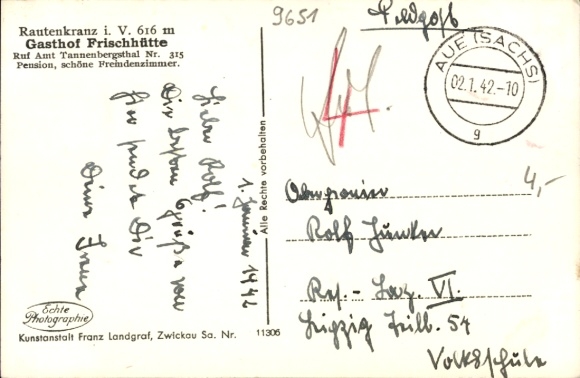 Rautenkranz i. V. 616 m
Gasthof Frischhütte
Ruf Amt Tannenbergsthal Nr. 315
Pension, schöne Fremdenzimmer.
9651
Feldpost
AUE (SACHS)
02.1.42.-10
g
1. Januar 1942
Lieber Rolf!
Die besten Grüße von
hier sendet Dir
Deine
Alle Rechte vorbehalten
4,-
Rolf Junker
Res.- Laz. VI.
Leipzig Zeilb. 54
Volksschule
Echte
Photographie
Kunstanstalt Franz Landgraf, Zwickau Sa. Nr.
11306